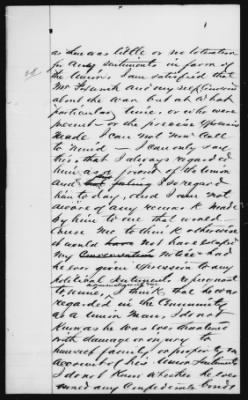 as there was little or no toleration
for any sentiments in favor of
the Union. I am satisfied that
Mr and myself
about the war but at what
particular time, or who were
present or the precise
made I can not now call
to mind — I can only say
this, that I always regarded
him as a friend of the Union
and I so regard
him to day, and am not
aware of any remark made
by him to me that would
cause me to think otherwise
it would have not have escaped
my Conversation notice had
he ever given expression to any
political sentiments
to me, I think, that he was
regarded in the Community
as a Union Man, I do not
know as he was ever threatened
with damage or injury to
himself family, or property on
account of his Union Sentiments
I do not know whether he ever
owned any Confederate bonds